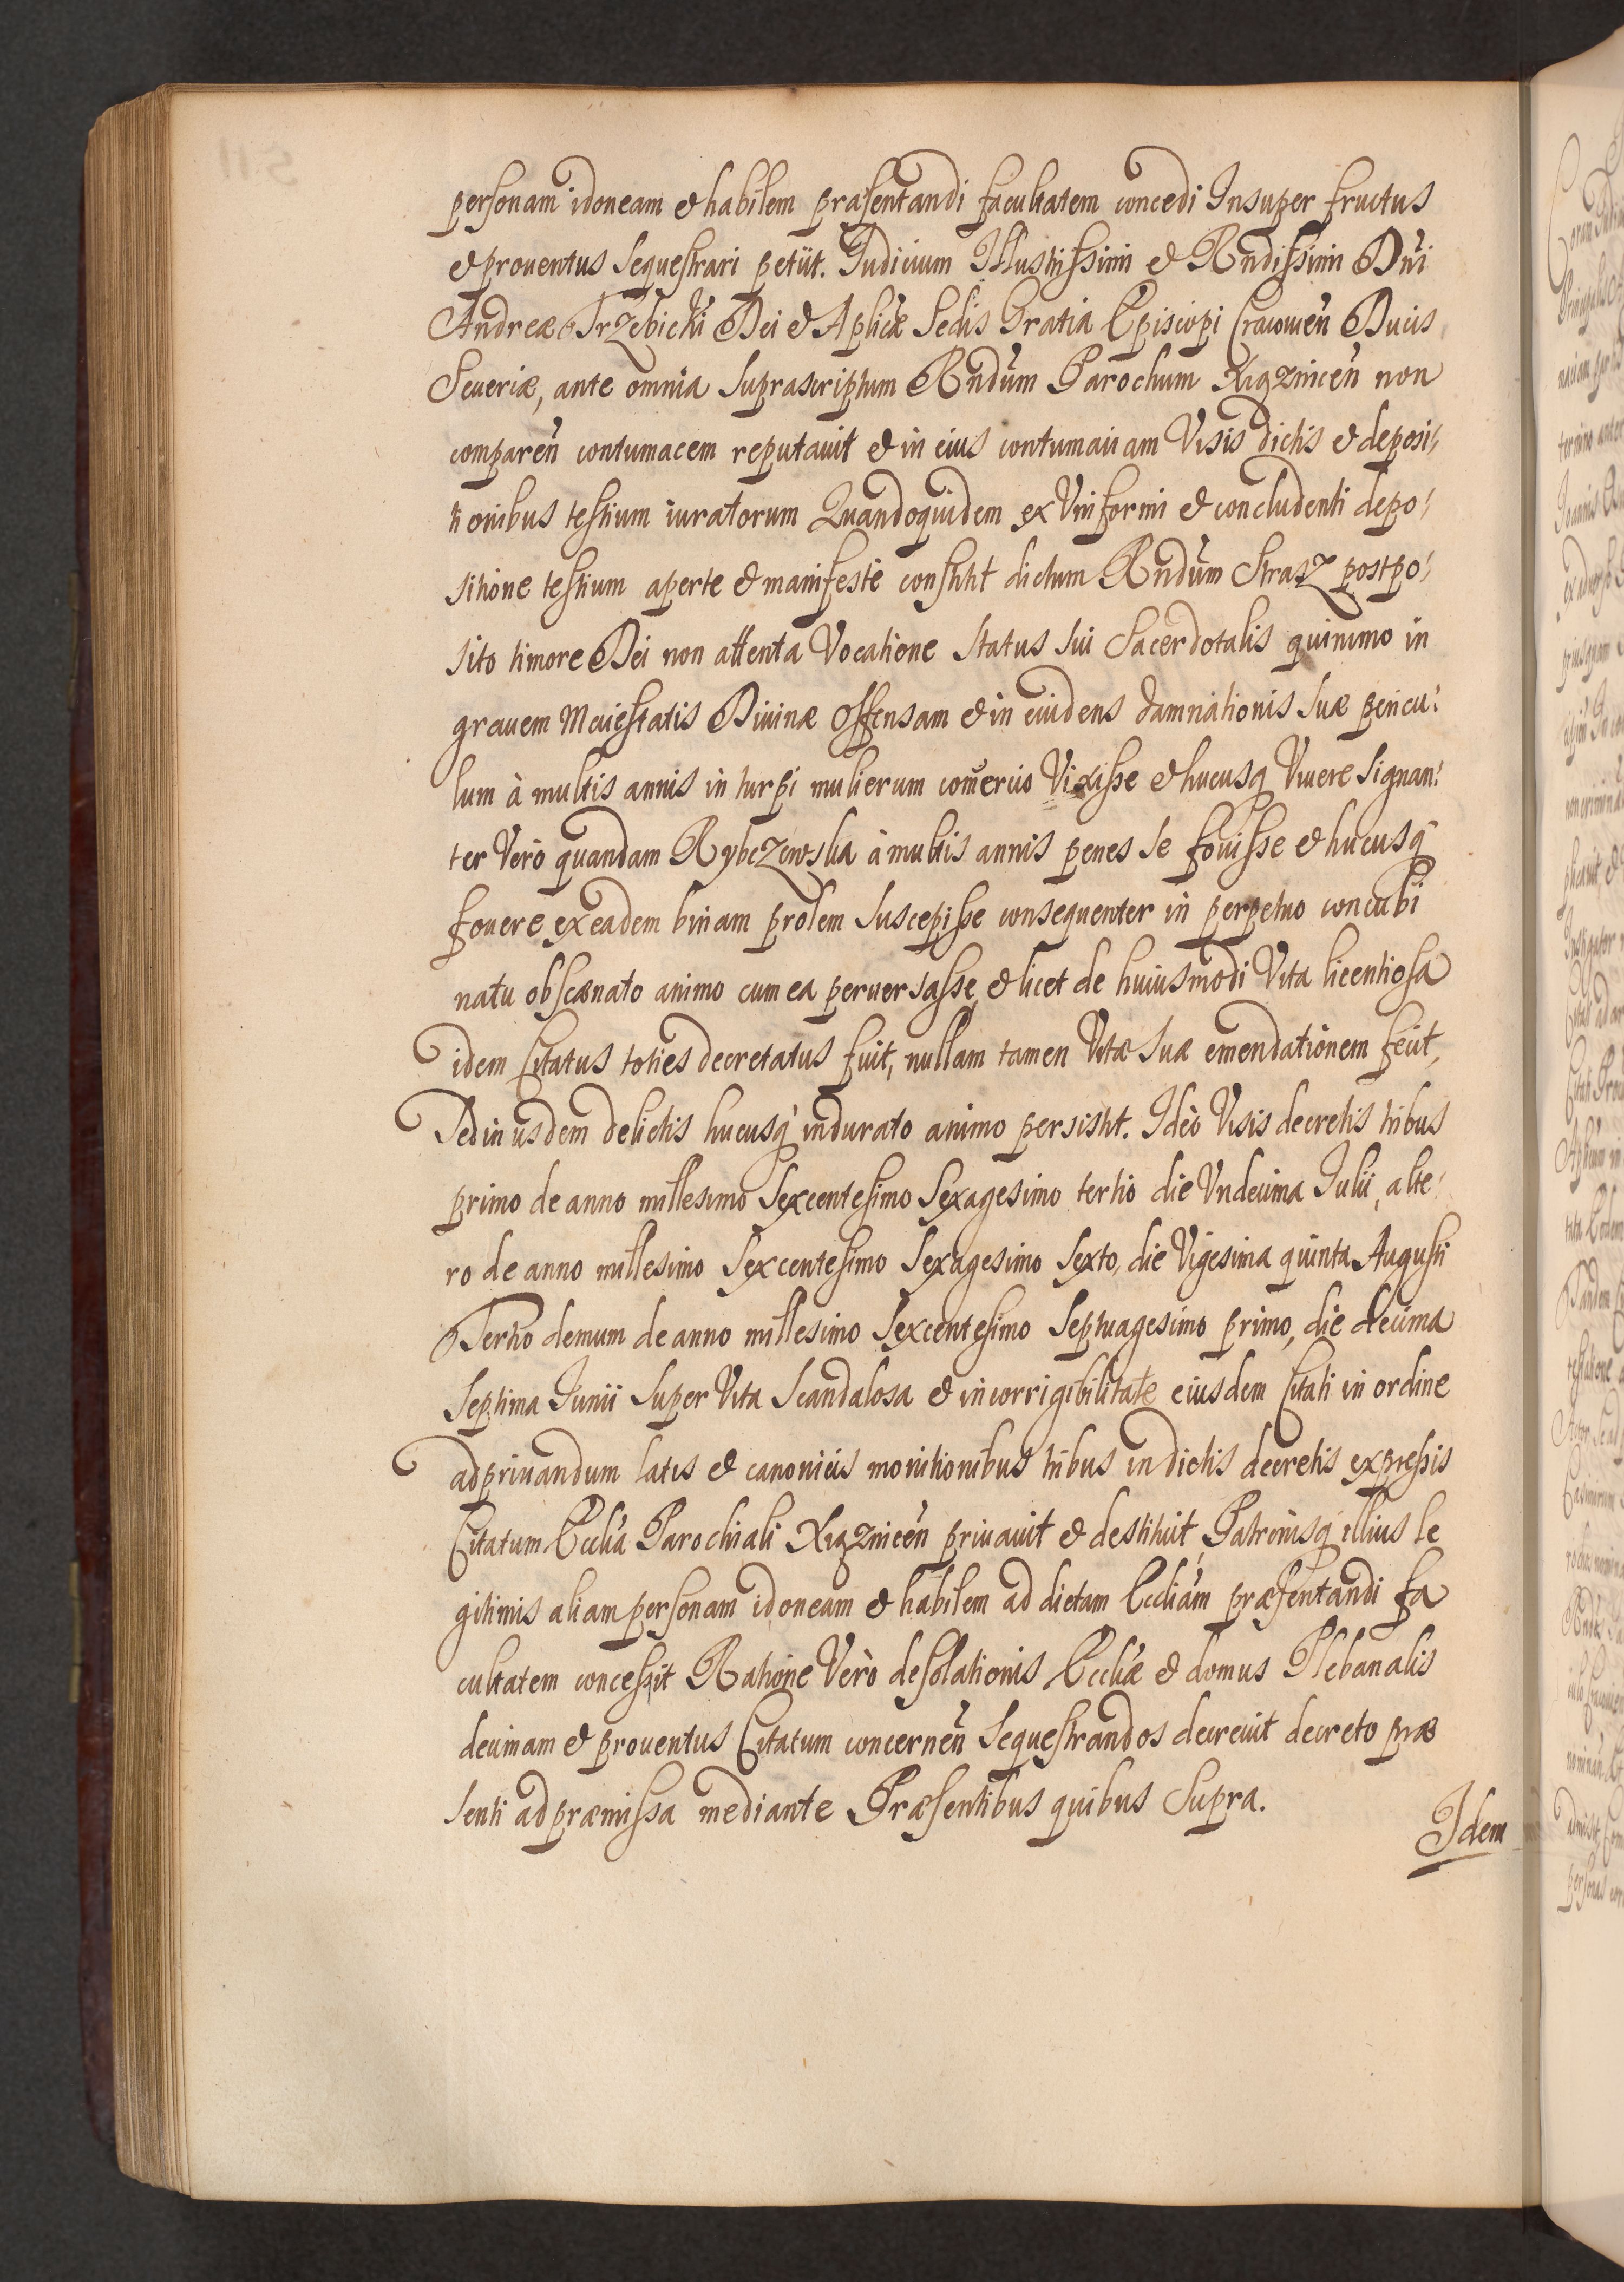 personam idoneam & habilem præsentandi facultatem concedi Insuper fructus
& prouentus sequestrari petiit. Iudicium Illustrissimi & Rñdissimi Dñi
Andreæ Trzebicki Dei & Aplicæ Sedis Gratia Episcopi Cracouieñ Ducis
Seueriæ, ante omnia suprascriptum Rñdum Parochum Xiązniceñ non
compareñ contumacem reputauit & in eius contumaciam Visis dictis & deposi-
tionibus testium iuratorum Quandoquidem ex Vniformi & concludenti depo-
sitione testium aperte & manifestè constitit dictum Rñdum Strasz postpo-
sito timore Dei non attenta Vocatione status sui Sacerdotalis quinimo in
grauem Maiestatis Diuinæ offensam & in euidens damnationis suæ pericu-
lum à multis annis in turpi mulierum comercio Vixisse & hucusq Viuere signan-
ter Verò quandam Rybczewska à multis annis penes se fouisse & hucusq
fouere ex eadem binam prolem suscepisse consequenter in perpetuo concubi
natu obscænato animo cum ea peruersasse, & licet de huiusmodi Vita licentiosa
idem Citatus toties decretatus fuit, nullam tamen Vitæ suæ emendationem fecit,
Sed in iisdem delictis hucusq indurato animo persistit. Ideò Visis decretis tribus
primo de anno millesimo sexcentesimo sexagesimo tertio die Vndecima Iulii, alte-
ro de anno millesimo sexcentesimo sexagesimo sexto, die Vigesima quinta Augusti
Tertio demum de anno millesimo sexcentesimo septuagesimo primo, die decima
septima Iunii super Vita scandalosa & incorrigibilitate eiusdem Citati in ordine
ad priuandum latis & canonicis monitionibus tribus in dictis decretis expressis
Citatum Ecclia Parochiali Xiązniceñ priuauit & destituit, Patronisq illius le
gitimis aliam personam idoneam & habilem ad dictam Eccliam præsentandi fa
cultatem concessit Ratione Verò desolationis Eccliæ & domus Plebanalis
decimam & prouentus Citatum concerneñ sequestrandos decreuit decreto præ
senti ad præmissa mediante Præsentibus quibus supra.
Idem